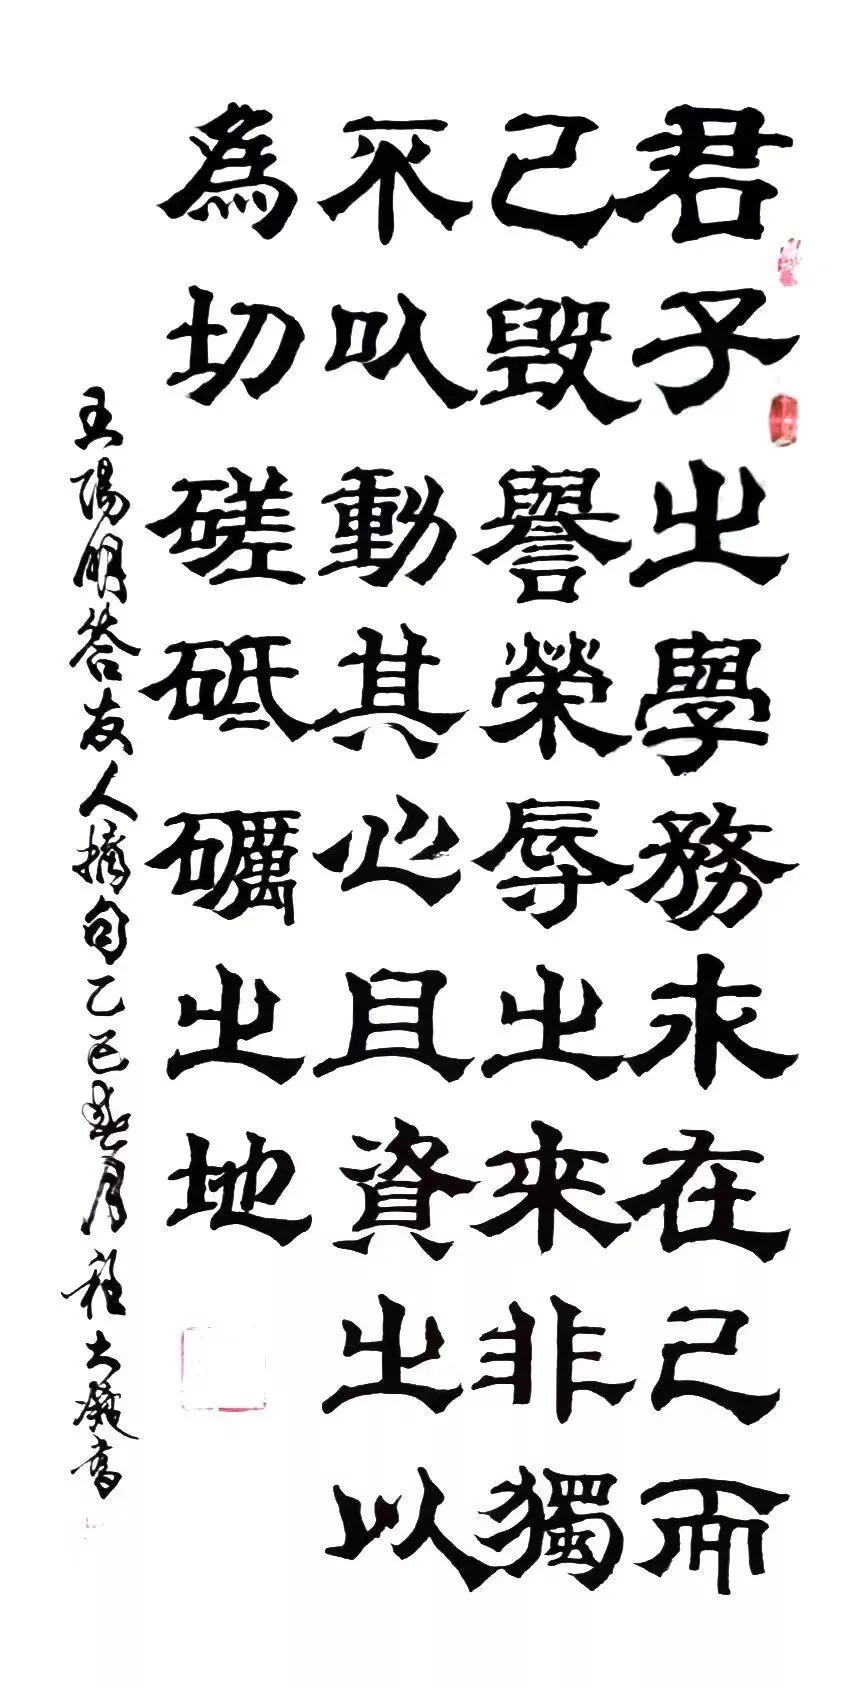 君子之學務求在己而
己毀譽榮辱之來非獨
不以動其心且資之以
為切磋砥礪之地
王陽明答友人摘句乙巳春月程大書